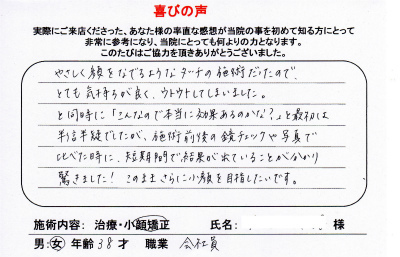 喜びの声
実際にご来店くださった、あなた様の率直な感想が当院の事を初めて知る方にとって
非常に参考になり、当院にとっても何よりの力となります。
このたびはご協力を頂きありがうございました。
やさしく顔をなでるようなタッチの施術だけなので、
とても気持ちが良く、ウトウトしてしまいました。
と同時に「こんなので本当に効果あるのかな?」と最初は
半信半疑でしたが、施術前後の鏡チェックや写真で
比べた時に、短期間で結果が出ていることが分かり
驚きました! このままさらに小顔を目指したいです。
施術内容: 治療・小顔矯正 氏名: 様
男:女 年齢 38 才 職業 会社員